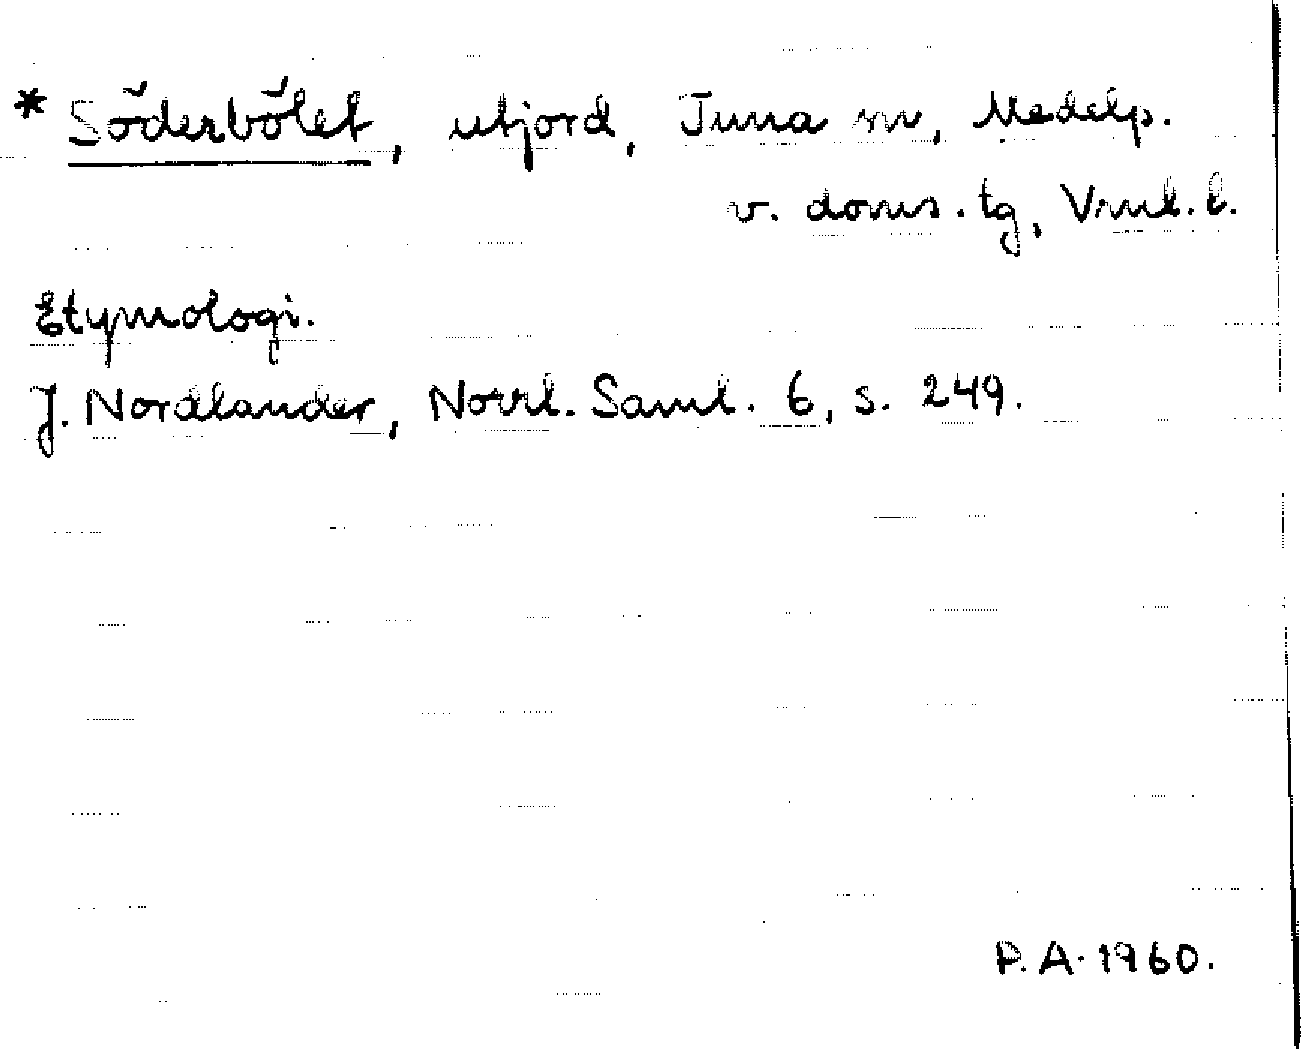 * Söderbölet, utjord, Tuna sn, Medelp.
v. doms. tg, Vrnl. l.
Etymologi.
J. Nordlander, Norrl. Saml. 6, s. 249.
P. A. 1960.